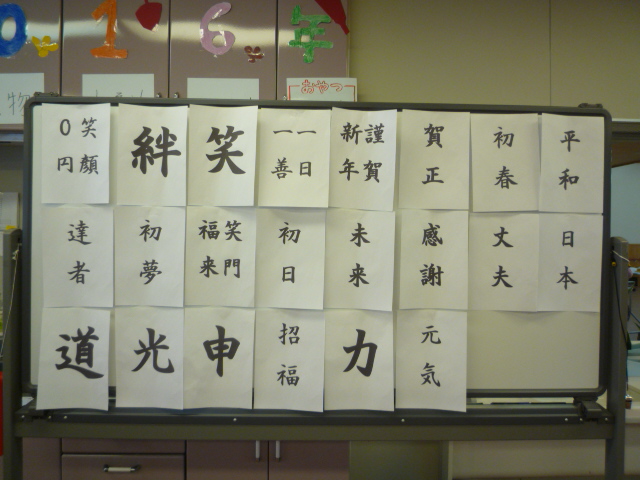 016年
物
おやつ
平和
初春
賀正
謹賀新年
一日一善
笑
絆
笑顔0円
日本
丈夫
感謝
未来
初日
笑門福来
初夢
達者
元気
力
招福
申
光
道